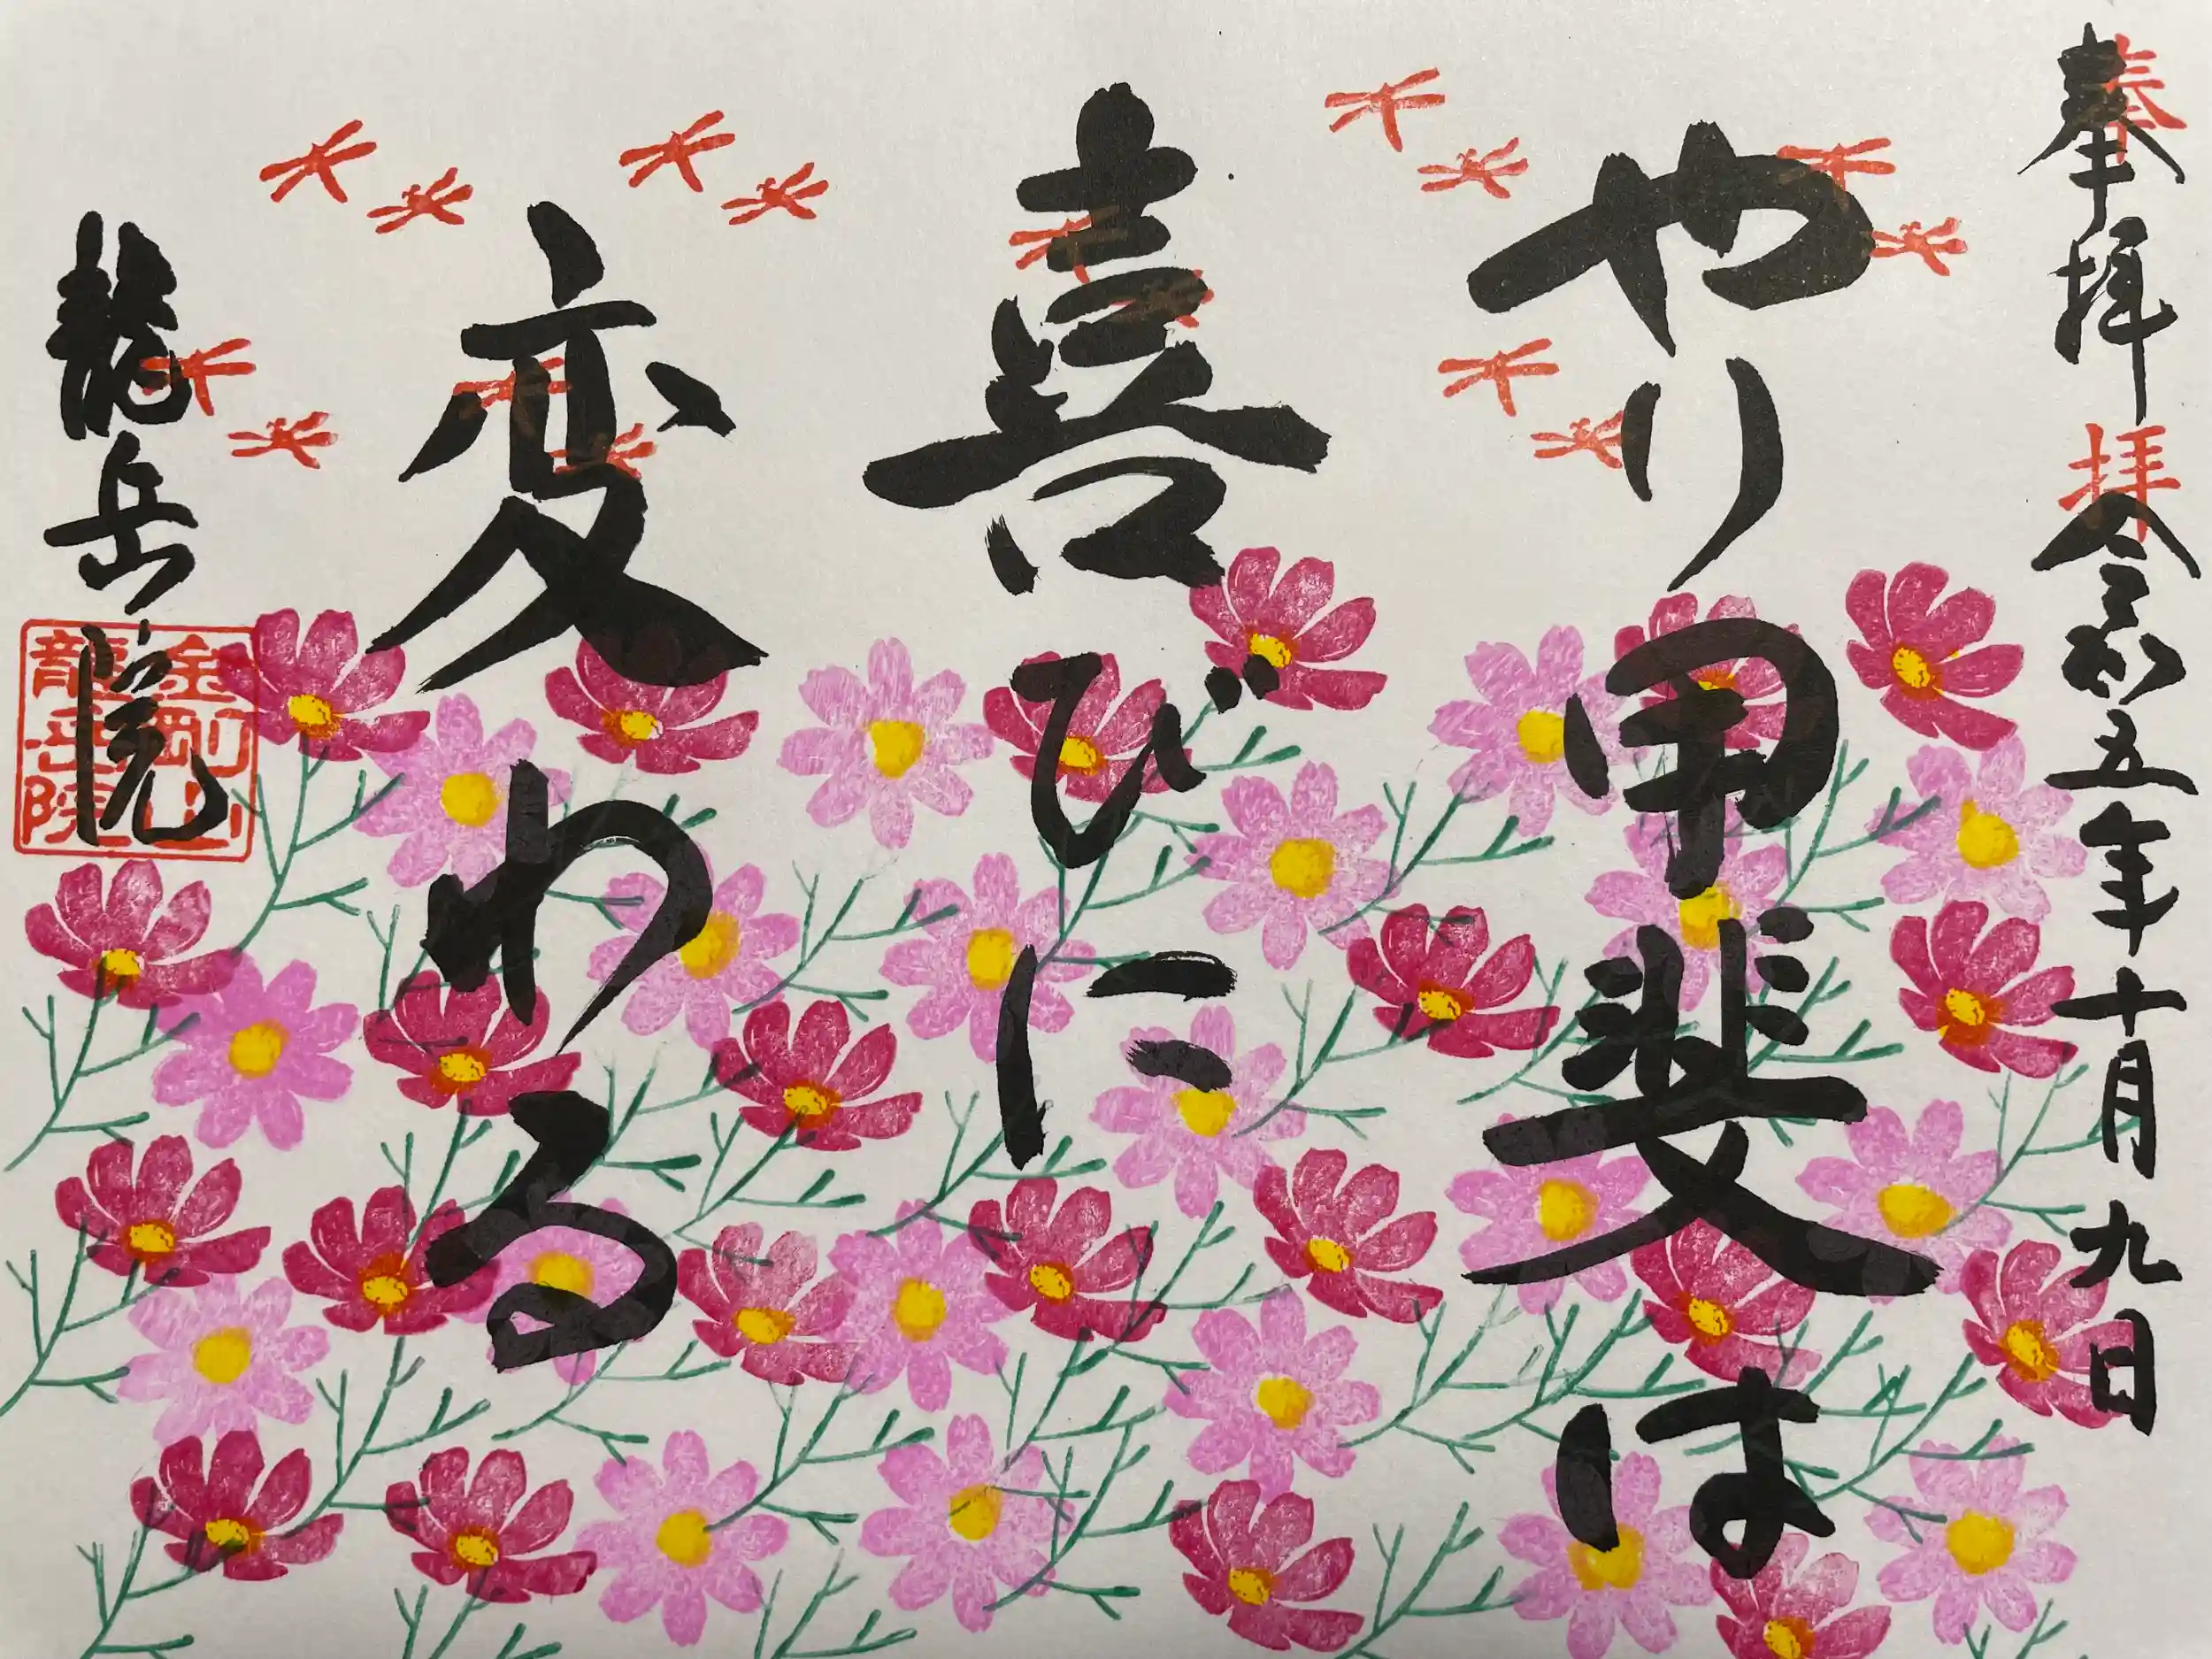 奉拝 令和五年十月九日
奉拝
やり甲斐は
喜びに
変わる
龍岳院
金剛山
龍岳院